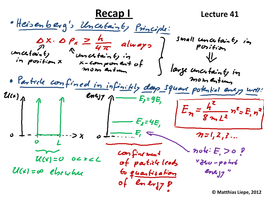 Recap I
Lecture 41
• Heisenberg's Uncertainty Principle:
Δx · Δpx ≥ h/4π always
uncertainty in position x
uncertainty in x-component of momentum
small uncertainty in position
large uncertainty in momentum
• Particle confined in infinitely deep square potential energy well:
U(x)
∞
∞
0
L
x
U(x)=0 0<x<L
U(x)=∞ elsewhere
energy
E3=9E1
E2=4E1
E1
0
x
confinement of particle leads to quantization of energy!
En = h²/8mL² n² = E1 n²
n=1,2,...
note: E1>0!
"zero-point energy"
© Matthias Liepe, 2012